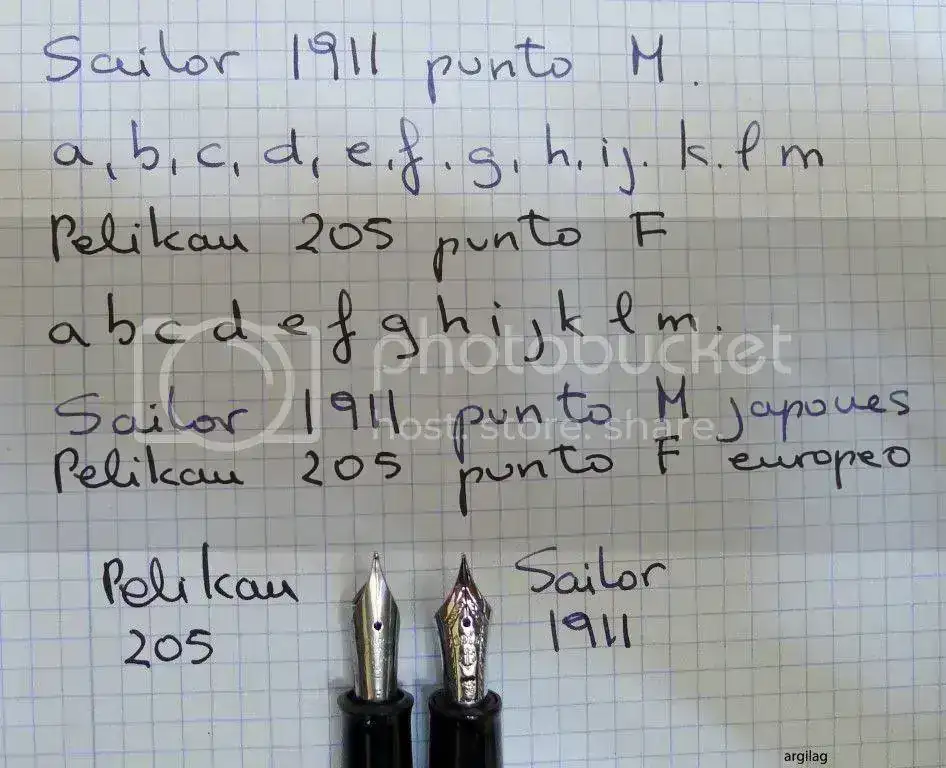 Sailor 1911 punto M.
a, b, c, d, e, f. g, h, i j. k. l m
Pelikan 205 punto F
a b c d e f g h i j k l m.
photobucket
Sailor 1911 punto M japones
host. store. share.
Pelikan 205 punto F europeo
Pelikan
205
Sailor
1911
argilag